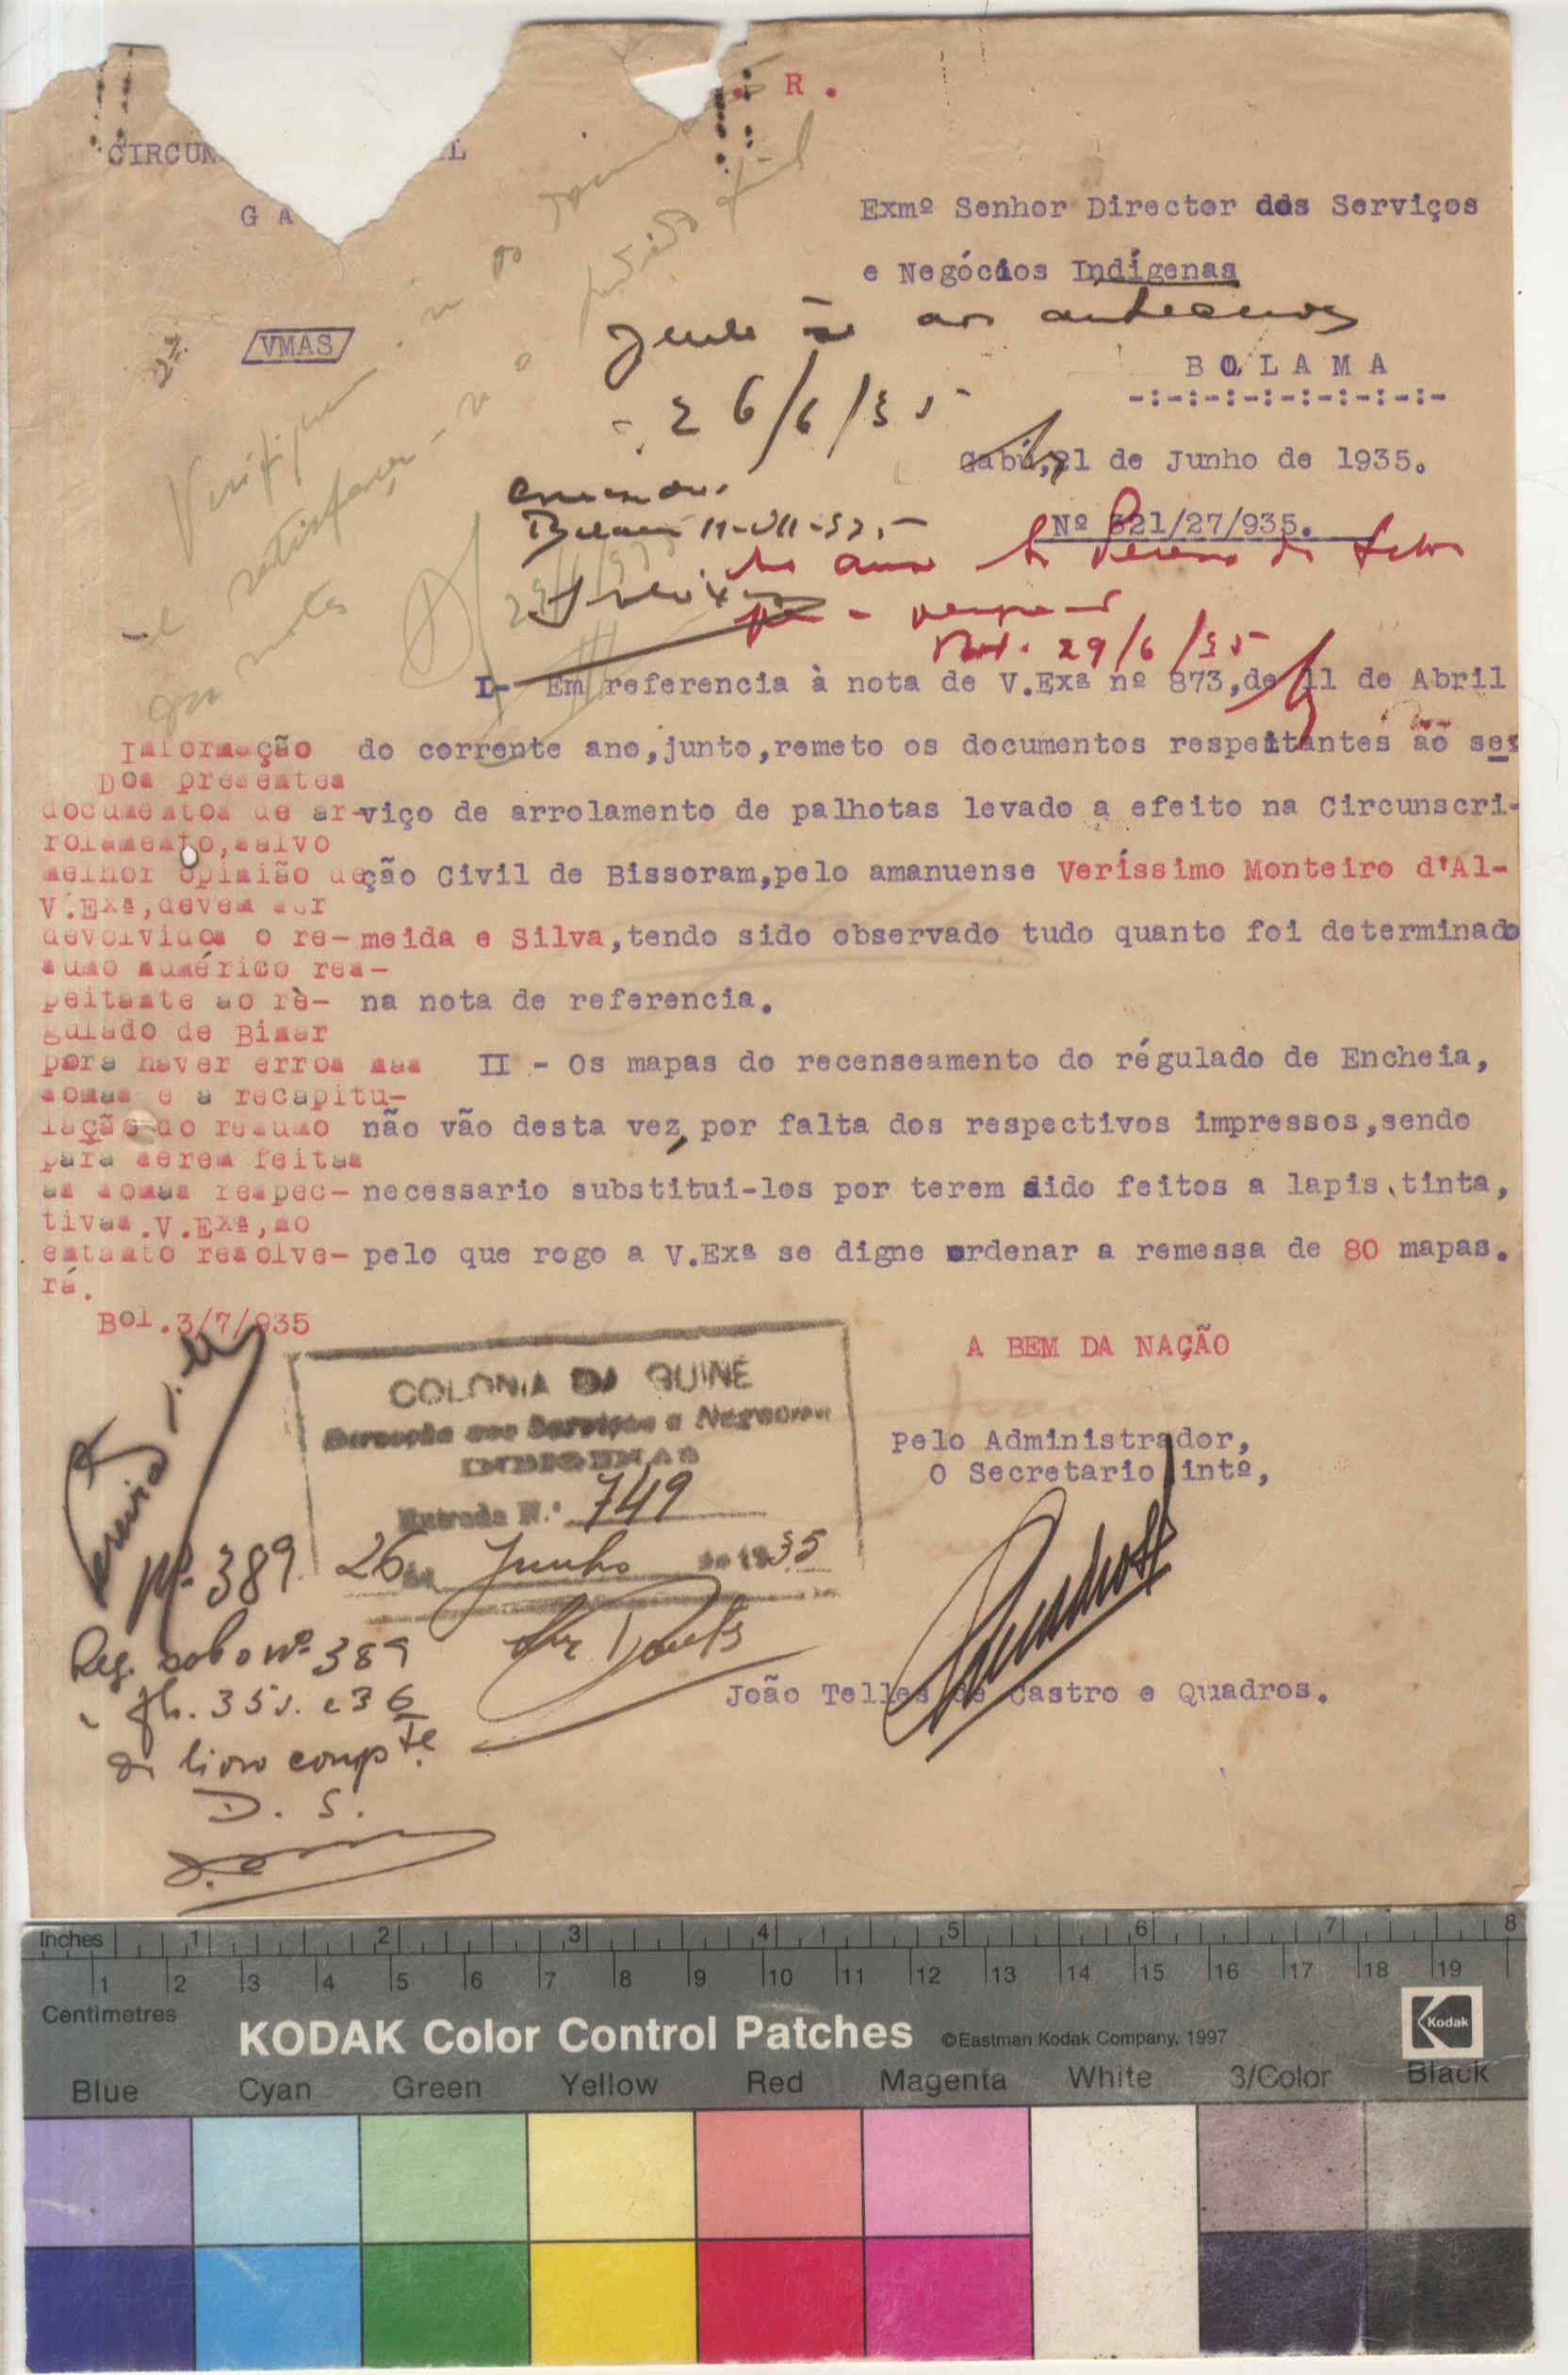 R .
CIRCUN
L
G A
Exmº Senhor Director dos Serviços
e Negócios Indígenas
Junte-se aos antecedentes
26/6/35
VMAS
BOLAMA
-:-:-:-:-:-:-:-:-
Gabú,21 de Junho de 1935.
Nº 321/27/935.
11-VII-935
29/6/35
I- Em referencia à nota de V.Exª nº 873,de 11 de Abril
do corrente ano,junto,remeto os documentos respeitantes ao ser
viço de arrolamento de palhotas levado a efeito na Circunscri-
ção Civil de Bissoram,pelo amanuense Veríssimo Monteiro d'Al-
meida e Silva,tendo sido observado tudo quanto foi determinado
na nota de referencia.
II - Os mapas do recenseamento do régulado de Encheia,
não vão desta vez, por falta dos respectivos impressos,sendo
necessario substitui-los por terem sido feitos a lapis tinta,
pelo que rogo a V.Exª se digne ordenar a remessa de 80 mapas.
Informação
Dos presentes
documentos de ar-
rolamento,salvo
melhor opinião de
V.Exª,devem ser
devolvidos o re-
sumo numérico res-
peitante ao rè-
gulado de Bimar
para haver erros nas
somas e a recapitu-
lação do resumo
para serem feitas
as somas respec-
tivas.V.Exª,no
entanto resolve-
rá.
Bol.3/7/935
A BEM DA NAÇÃO
Pelo Administrador,
O Secretario intº,
João Telles de Castro e Quadros.
COLONIA DA GUINÉ
Direcção dos Serviços e Negocios
INDIGENAS
Entrada N.º 749
26 de Junho de 1935
Nº 389
Reg. sob o nº 389
fls. 35v. e 36
do livro compte.
D. S.
Inches 1 2 3 4 5 6 7 8
1 2 3 4 5 6 7 8 9 10 11 12 13 14 15 16 17 18 19
Centimetres
KODAK Color Control Patches ©Eastman Kodak Company, 1997
Kodak
Blue Cyan Green Yellow Red Magenta White 3/Color Black